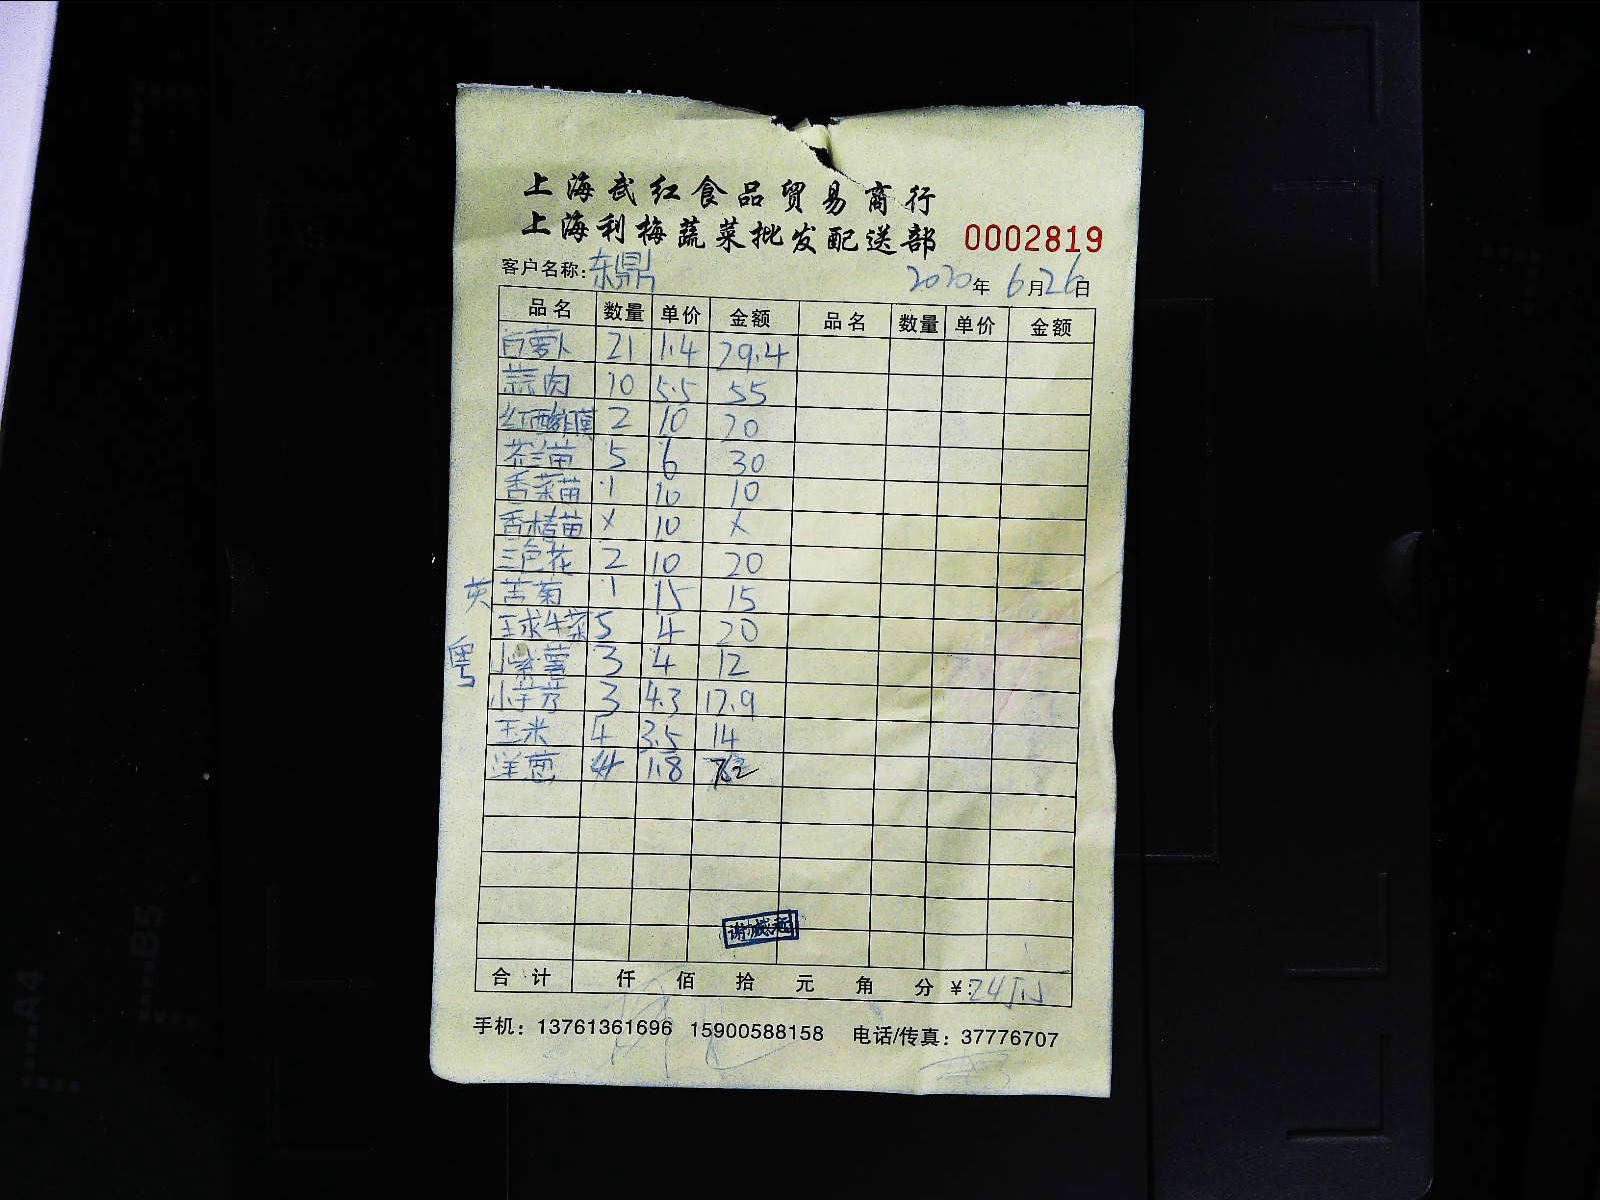 上海武红食品贸易商行
上海利梅蔬菜批发配送部 0002819
客户名称:东鼎 2020年6月26日
品名 数量 单价 金额 品名 数量 单价 金额
白萝卜 21 1.4 29.4
蒜肉 10 5.5 55
红酸膜 2 10 20
芥兰苗 5 6 30
香菜苗 1 10 10
香椿苗 × 10 ×
三色花 2 10 20
英 苦菊 1 15 15
玉球生菜 5 4 20
粤 小紫薯 3 4 12
小芋艿 3 4.3 12.9
玉米 4 3.5 14
洋葱 4 1.8 7.2
合计 仟 佰 拾 元 角 分 ¥:
手机:13761361696 15900588158 电话/传真:37776707